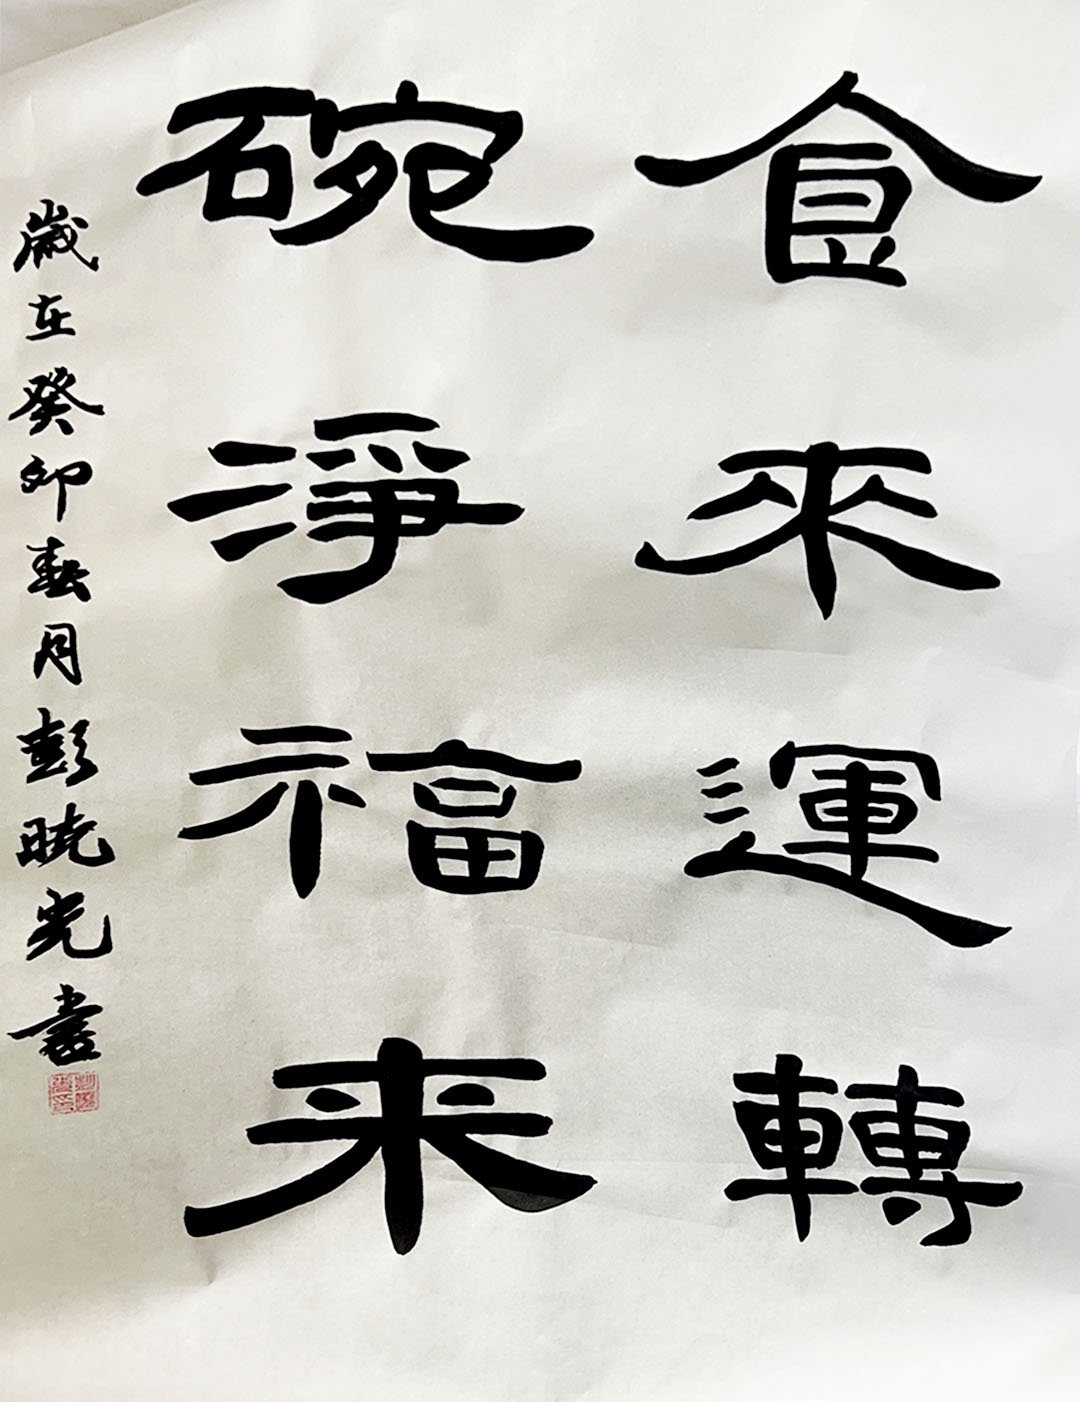 食來運轉
碗淨福来
歲在癸卯春月彭曉光書